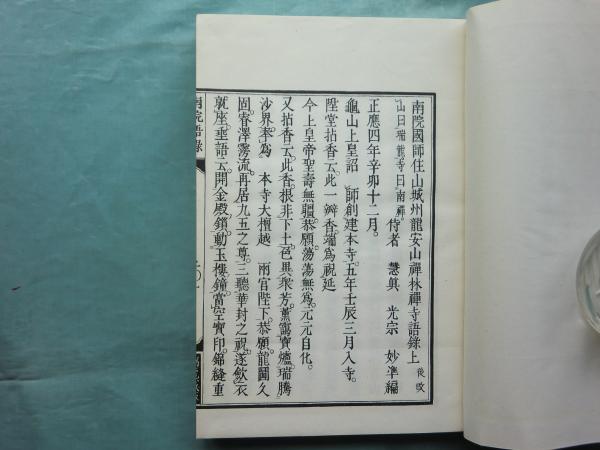 南院國師住山城州龍安山禪林禪寺語錄上 後改
山曰瑞龍寺曰南禪
侍者 慧眞 光宗 妙準編
正應四年辛卯十二月。
龜山上皇詔 師創建本寺。五年壬辰三月入寺。
陞堂拈香云。此一瓣香。端爲祝延
今上皇帝聖壽無疆。恭願。蕩蕩無爲。元元自化。
又拈香云。此香根非下土。色異衆芳。薰靄寶爐。瑞騰
沙界。奉爲 本寺大檀越 兩宮陛下。恭願。龍圖久
固。睿澤霶流。再居九五之尊。三聽華封之祝。遂斂衣
就座。垂語云。開金殿鎖。動玉樓鐘。當空寶印錦縫重
南院語錄